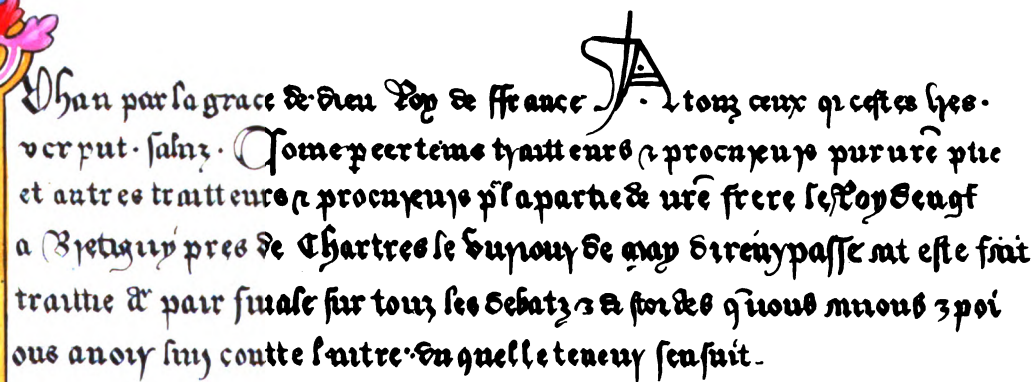 Jehan par la grace de dieu Roy de ffrance A touz ceux qi cestes lres
verront salut. Come p certeins traitteurs & procureurs pur nre ptie
et autres traitteurs & procureurs p la partie de nre frere le Roy Dengl
a Bretigny pres de Chartres le jour de may passe ait este fait
traittie & pais finale sur touz les debatz & descordes q nous
ous avoir lun contre lautre. Du quelle teneur sensuit.